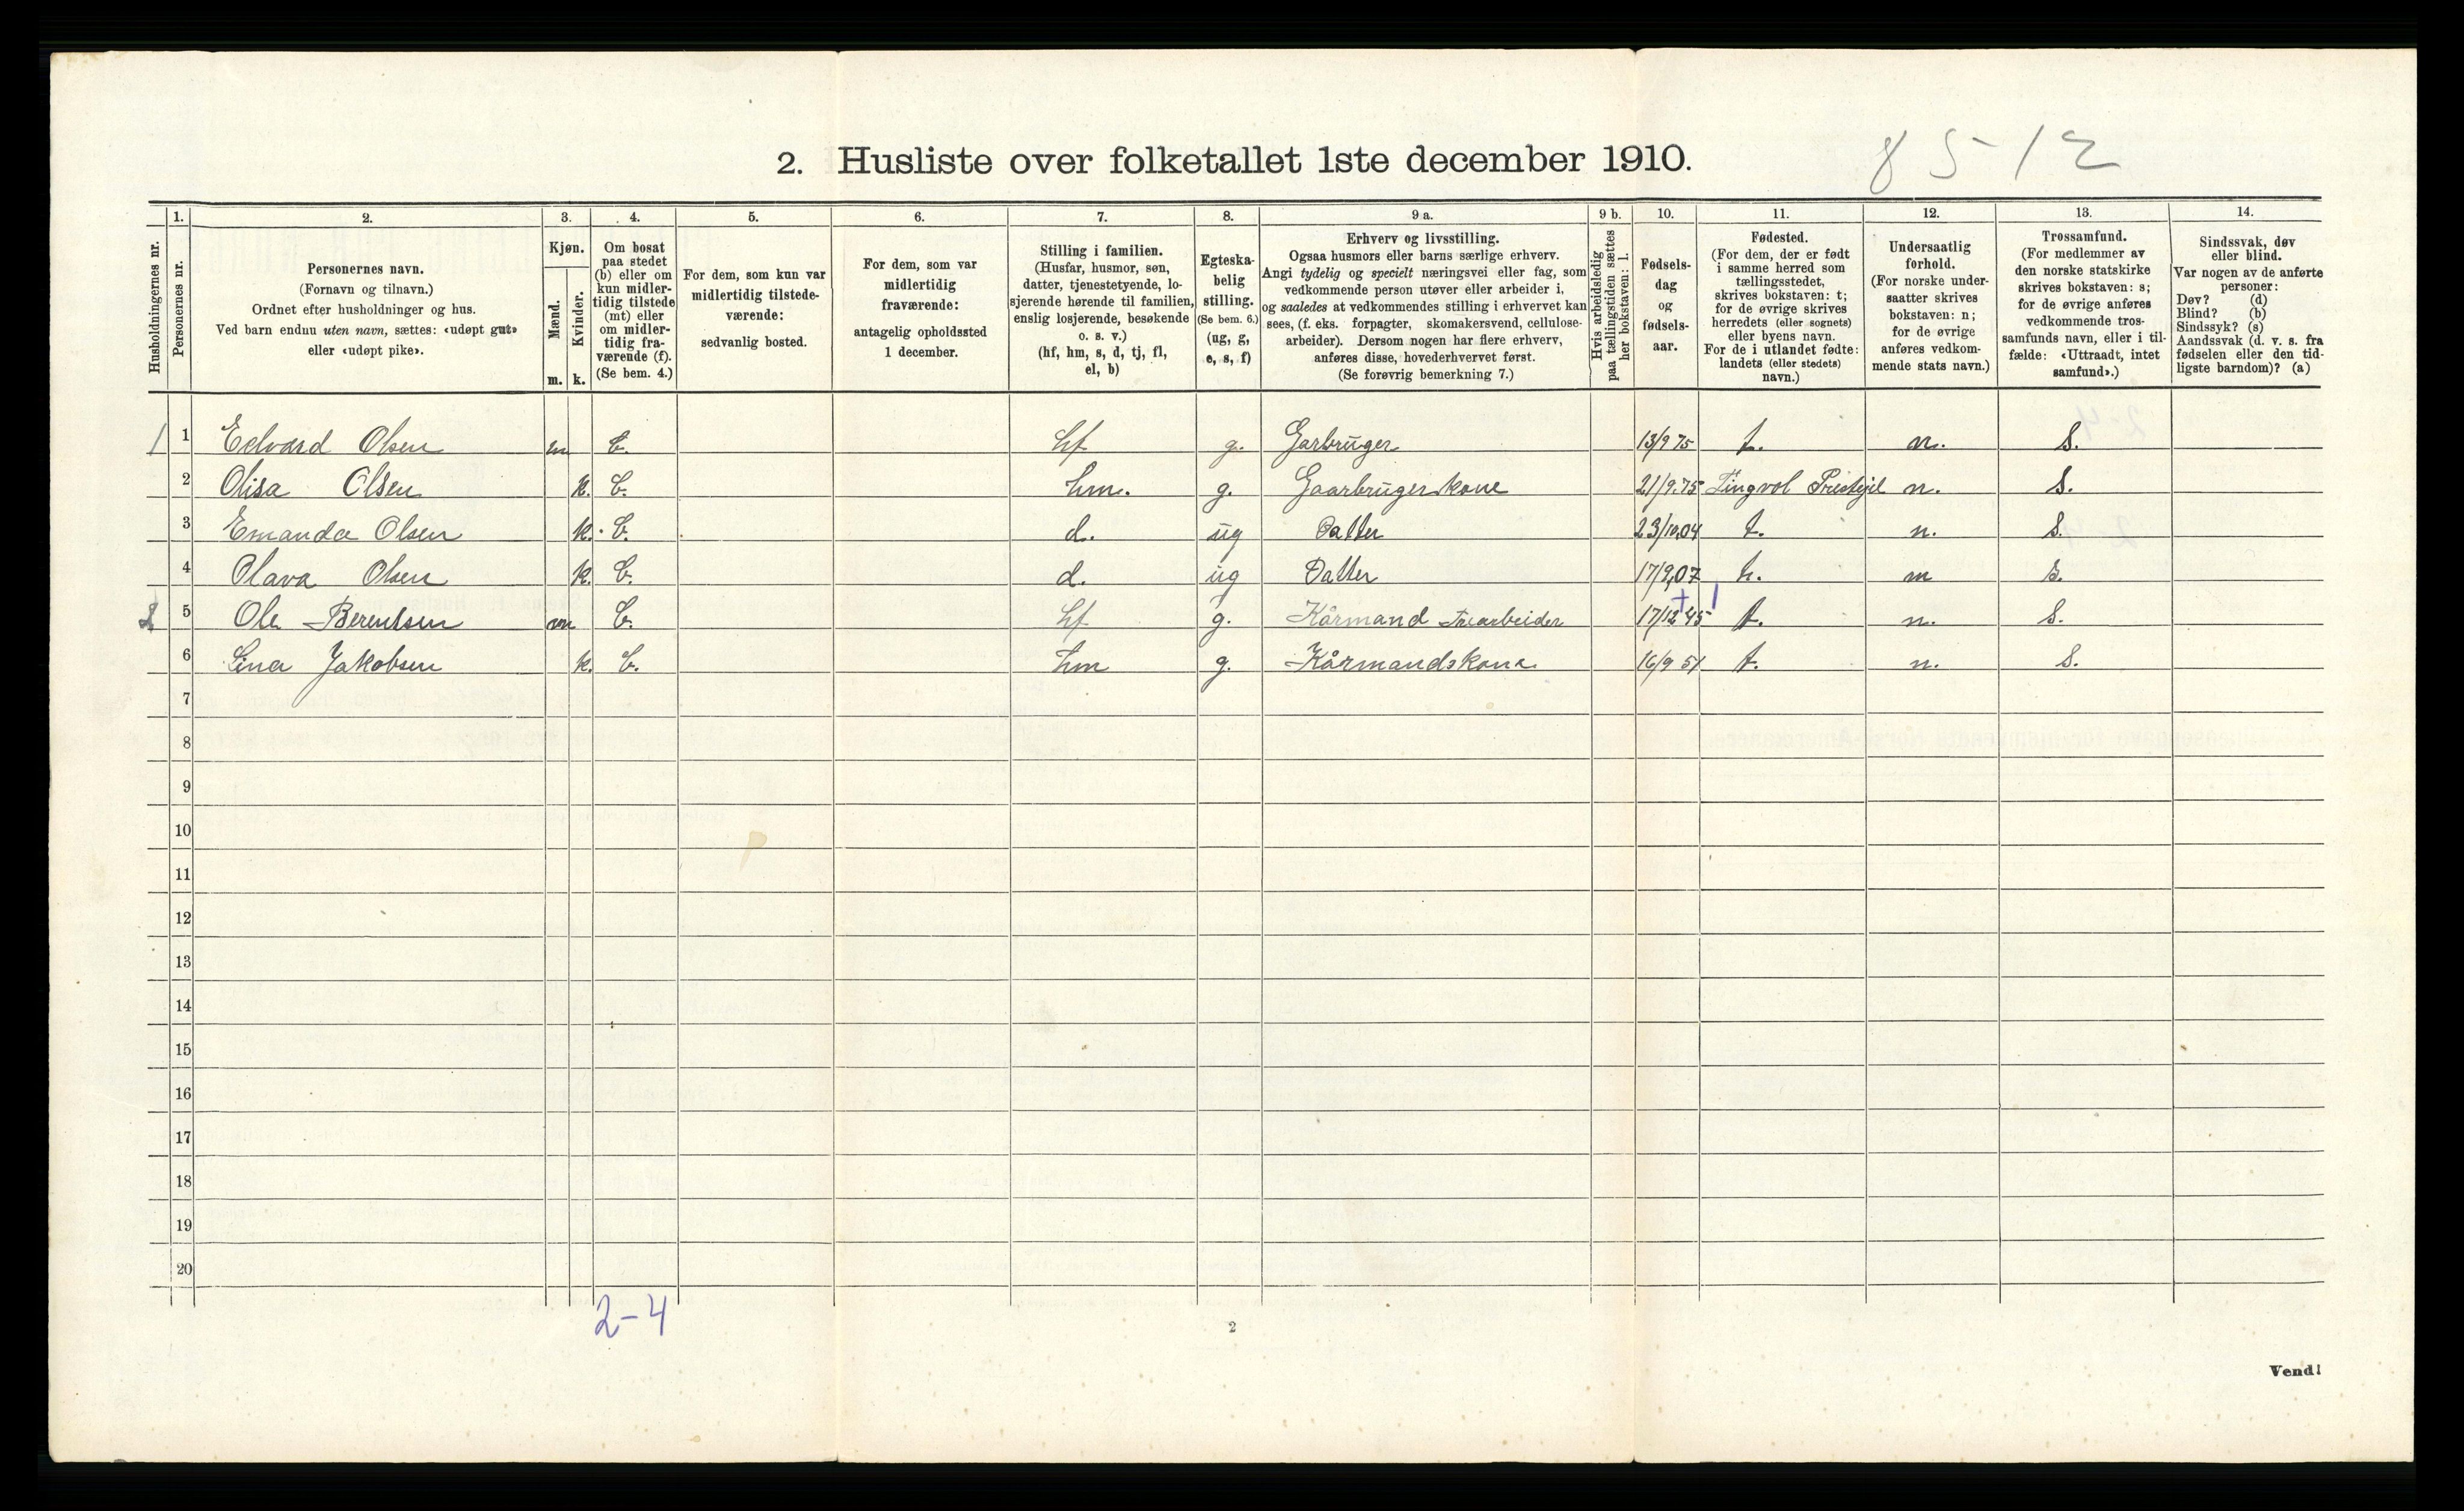 85-12
2. Husliste over folketallet 1ste december 1910.
Husholdningernes nr.
1. Personernes nr.
2. Personernes navn. (Fornavn og tilnavn.) Ordnet efter husholdninger og hus. Ved barn endnu uten navn, sættes: «udøpt gut» eller «udøpt pike».
3. Kjøn. Mænd. m. Kvinder. k.
4. Om bosat paa stedet (b) eller om kun midler-tidig tilstede (mt) eller om midler-tidig fra-værende (f). (Se bem. 4.)
5. For dem, som kun var midlertidig tilstede-værende: sedvanlig bosted.
6. For dem, som var midlertidig fraværende: antagelig opholdssted 1 december.
7. Stilling i familien. (Husfar, husmor, søn, datter, tjenestetyende, lo-sjerende hørende til familien, enslig losjerende, besøkende o. s. v.) (hf, hm, s, d, tj, fl, el, b)
8. Egteska-belig stilling. (Se bem. 6.) (ug, g, e, s, f)
9 a. Erhverv og livsstilling. Ogsaa husmors eller barns særlige erhverv. Angi tydelig og specielt næringsvei eller fag, som vedkommende person utøver eller arbeider i, og saaledes at vedkommendes stilling i erhvervet kan sees, (f. eks. forpagter, skomakersvend, cellulose-arbeider). Dersom nogen har flere erhverv, anføres disse, hovederhvervet først. (Se forøvrig bemerkning 7.)
9 b. Hvis arbeidsledig paa tællingstiden sættes her bokstaven: l.
10. Fødsels-dag og fødsels-aar.
11. Fødested. (For dem, der er født i samme herred som tællingsstedet, skrives bokstaven: t; for de øvrige skrives herredets (eller sognets) eller byens navn. For de i utlandet fødte: landets (eller stedets) navn.)
12. Undersaatlig forhold. (For norske under-saatter skrives bokstaven: n; for de øvrige anføres vedkom-mende stats navn.)
13. Trossamfund. (For medlemmer av den norske statskirke skrives bokstaven: s; for de øvrige anføres vedkommende tros-samfunds navn, eller i til-fælde: «Uttraadt, intet samfund».)
14. Sindssvak, døv eller blind. Var nogen av de anførte personer: Døv? (d) Blind? (b) Sindssyk? (s) Aandssvak (d. v. s. fra fødselen eller den tid-ligste barndom)? (a)
1 1 Edvard Olsen m b. hf g. Garbruger 13/9 75 t. n. s.
2 Olisa Olsen k. b. hm. g. Gaarbrugerskone 21/9.75 Tingvol Prestejel n. s.
3 Emanda Olsen k. b. d. ug Datter 23/10.04 t. n. s.
4 Olava Olsen k. b. d. ug Datter 17/9.07 t. n s.
2 5 Ole Berentsen m b. hf g. Kårmand Træarbeider 17/12 45 t. n. s.
6 Lina Jakobsen k. b. hm g. Kårmandskone 16/9 51 t. n. s.
7
8
9
10
11
12
13
14
15
16
17
18
19
20
2-4
2
Vend!